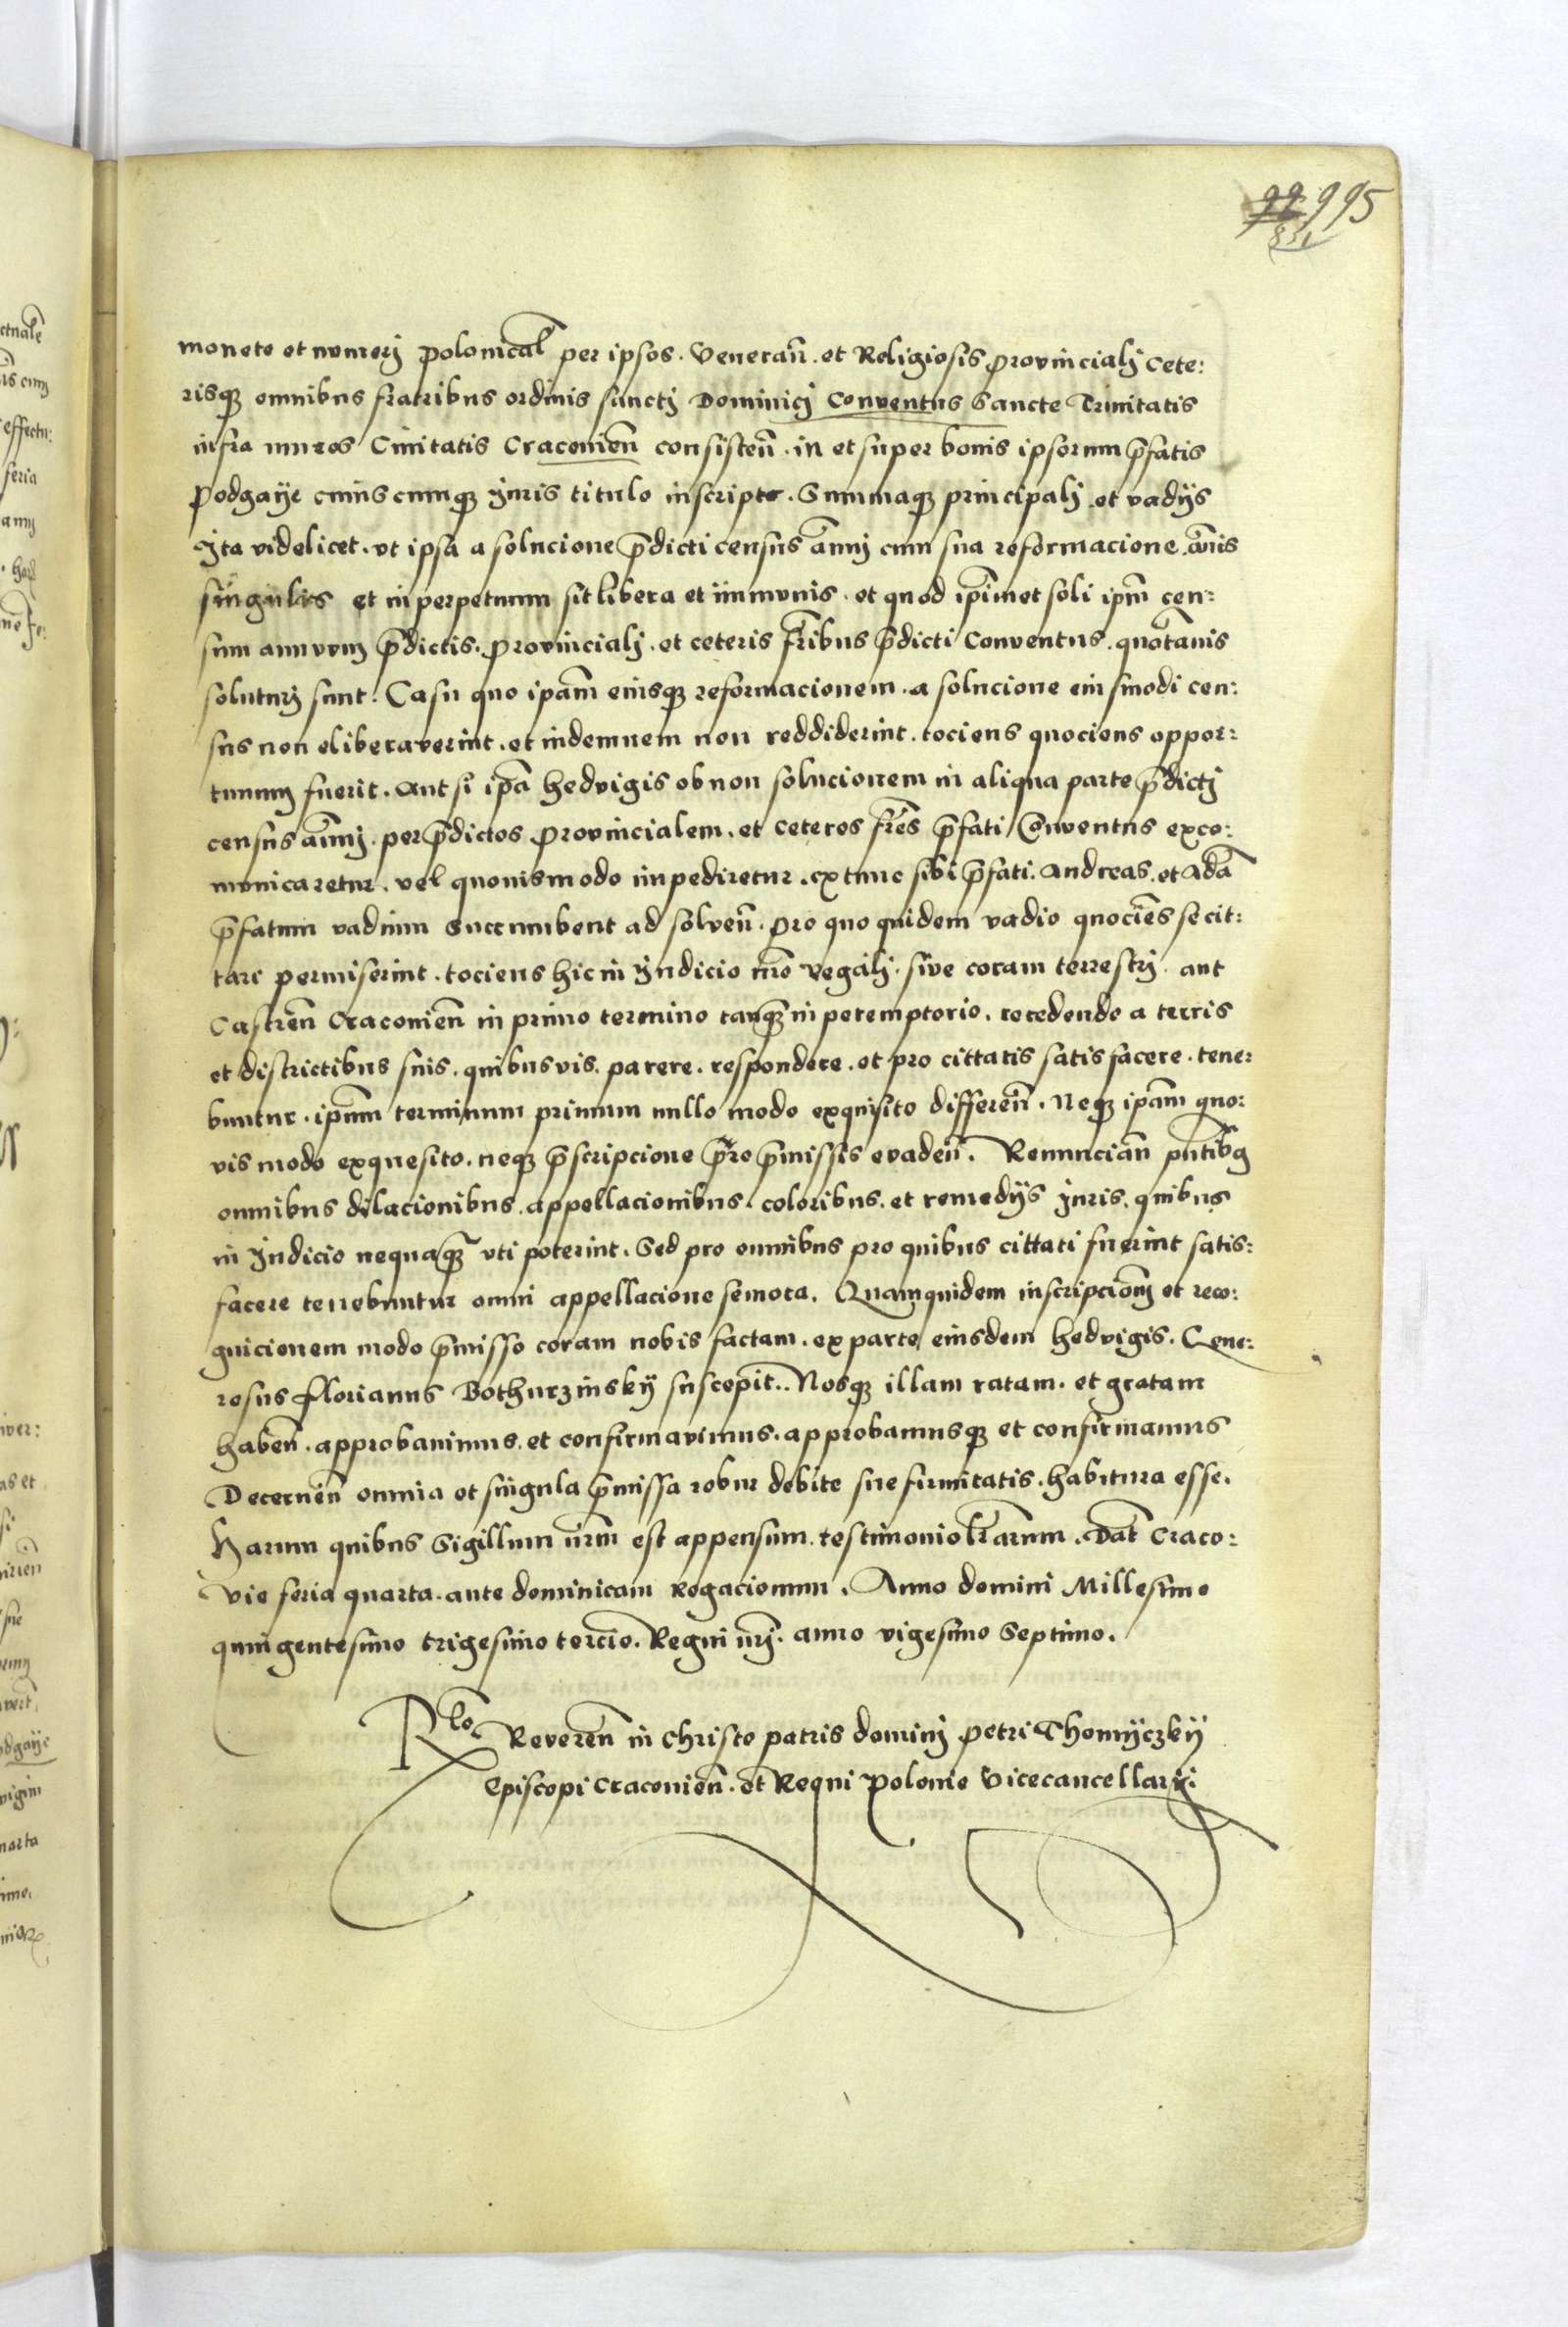 995
monete et numerj polonical̃ per ipsos. Veneran̄. et Religiosis provincialj cete:
risq₃ omnibus fratribus ordinis sanctj Dominicj Conventus Sancte Trinitatis
infra muros Civitatis Cracovien̄ consisten̄. in et super bonis ipsorum p̄fatis
Podgaÿe cuiuscumq₃ Juris titulo inscripto. Summaq₃ principalj et vadÿs
ita videlicet. vt ipsa a solucione p̄dicti census an̄uj cum sua reformacione an̄is
singulis et in perpetuum sit libera et immunis. et quod ip̄imet soli ip̄m cen:
sum annuum p̄dictis. provincialj. et ceteris fr̄ibus p̄dicti Conventus. quotan̄is
soluturj sunt. Casu quo ip̄am eiusq₃ reformacionem. a solucione eiusmodi cen:
sus non eliberaverint. et indemnem non reddiderint. tociens quociens oppor:
tunum fuerit. Aut si ip̄a hedvigis ob non solucionem in aliqua parte p̄dictj
census an̄uj. per p̄dictos provincialem. et ceteros fr̄es p̄fati Conventus exco:
municaretur. vel quouismodo impediretur. ex tunc sibi p̄fati. Andreas. et Adā
p̄fatum vadium Succumbent ad solven̄. pro quo quidem vadio quocie̅s se cit:
tari permiserint. tociens hic in Judicio nr̄o Regalj. sive coram terrestrj. aut
Castren̄ Cracovien̄ in primo termino tanq̄₃ in peremptorio. recedendo a terris
et districtibus suis. quibusvis. parere. respondere. et pro cittatis satisfacere. tene:
buntur. ip̄um terminum primum nullo modo exquisito differen̄. Neq₃ ip̄am quo:
vis modo exquesito. neq₃ p̄scripcione p̄ro p̄missis evaden̄. Renuncian̄ pn̄tib₉
omnibus dilacionibus. appellacionibus. coloribus. et remedÿs Juris. quibus
in Judicio nequaq̄₃ vti poterint. Sed pro omnibus pro quibus cittati fuerint satis:
facere tenebuntur omni appellacione semota. Quamquidem inscripcionē et reco:
gnicionem modo p̄misso coram nobis factam. ex parte eiusdem hedvigis. Gene:
rosus Florianus Bothurzinskÿ suscepit. Nosq₃ illam ratam. et gratam
haben̄. approbavimus. et confirmavimus. approbamusq₃ et confirmamus
Decernen̄ omnia et singula p̄missa robur debite sue firmitatis. habitura esse.
Harum quibus Sigillum nr̄m est appensum. testimonio lr̄arum. Dat̄ Craco:
vie feria quarta. ante dominicam rogacionum. Anno domini Millesimo
quingentesimo trigesimo tercio. Regni nr̄j. anno vigesimo Septimo.
R̄lo Reveren̄ in Christo patris dominj Petri Thomÿczkÿ
Episcopi Cracovien̄. et Regni Polonie Vicecancellarÿ.